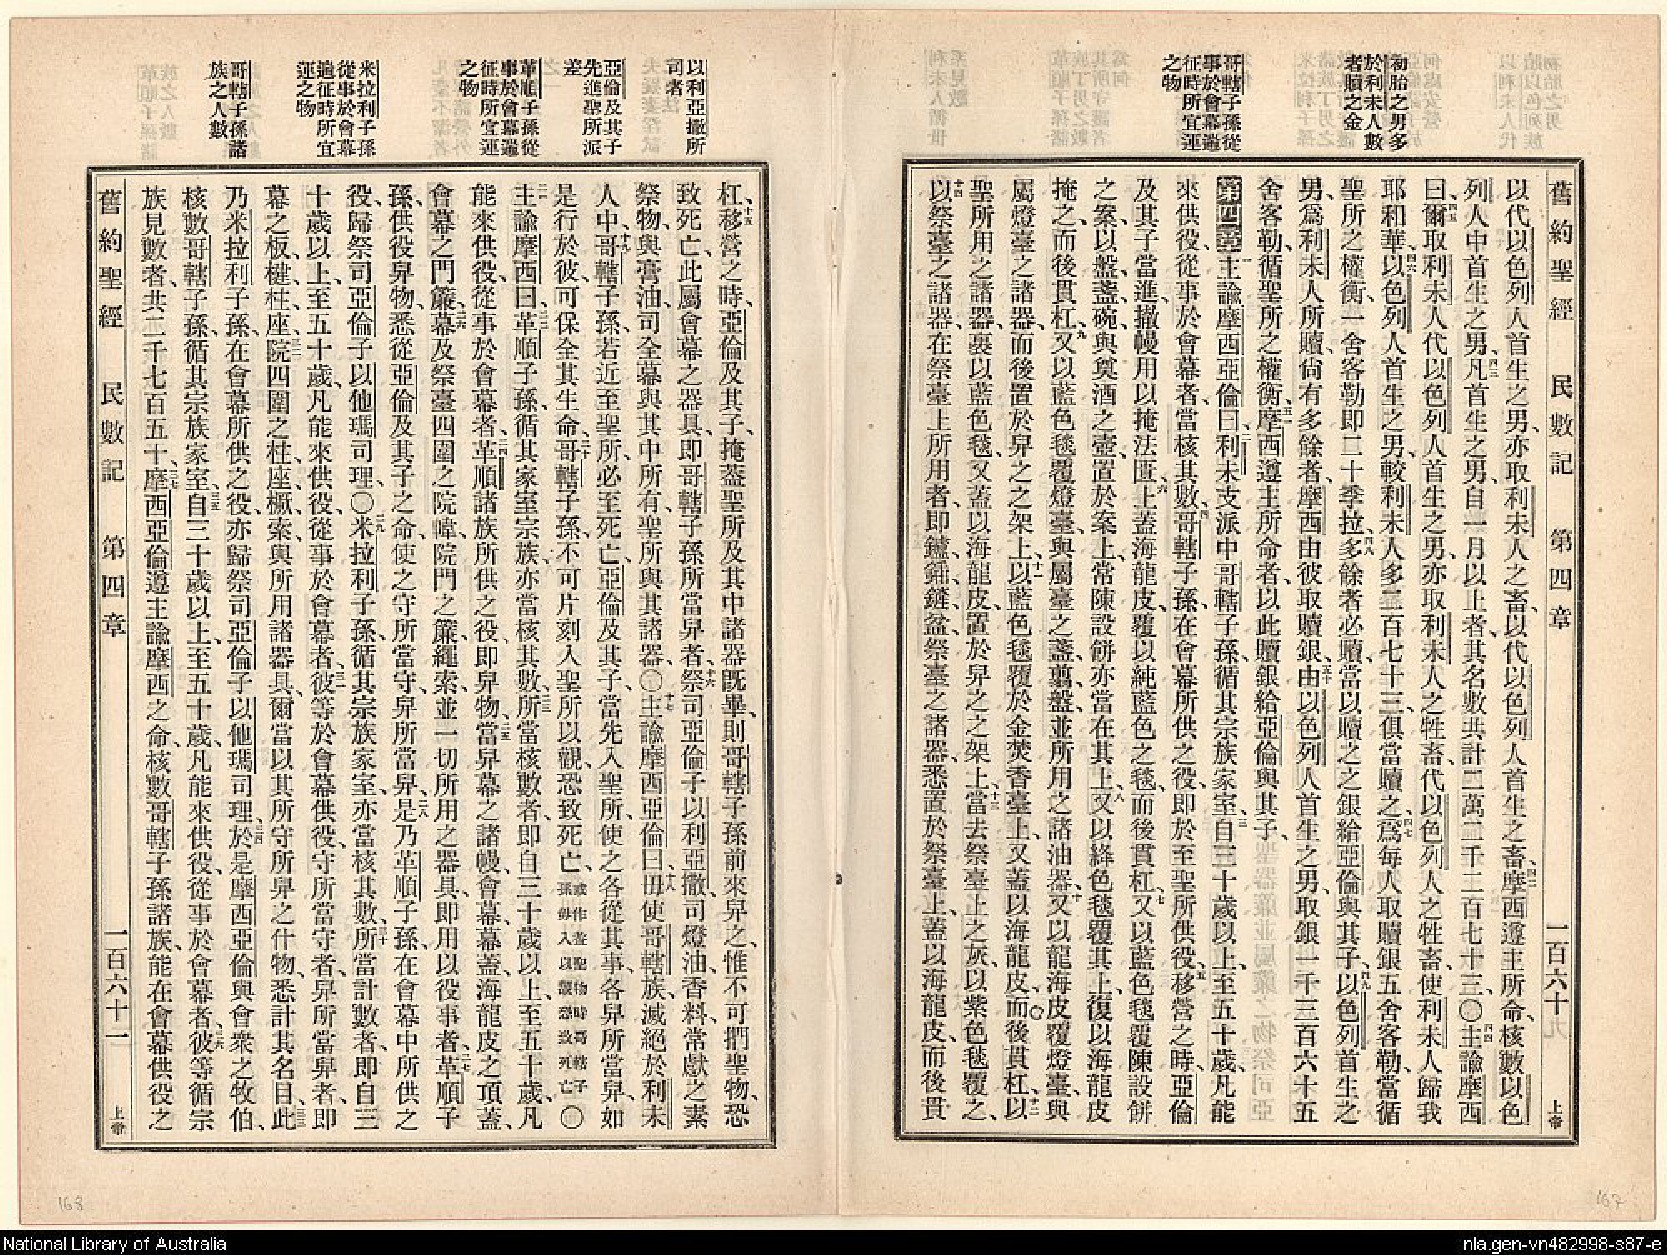 舊約聖經 民數記 第四章 一百六十 上帝
初胎之男多
於利未人數
者贖之金
哥轄子孫從
事於會幕遷
征時所宜運
之物
以代以色列人首生之男、亦取利未人之畜、以代以色列人首生之畜、摩西遵主所命、核數以色
列人中首生之男、凡首生之男、自一月以上者、其名數共計二萬二千二百七十三、〇主諭摩西
曰、爾取利未人代以色列人首生之男、亦取利未人之牲畜、代以色列人之牲畜、使利未人歸我、
耶和華、以色列人首生之男、較利未人多二百七十三、俱當贖之、爲每人取贖銀五舍客勒、當循
聖所之權衡、一舍客勒即二十季拉、多餘者必贖、當以贖之之銀、給亞倫與其子、以色列首生之
男、爲利未人所贖、尙有多餘者、摩西由彼取贖銀、由以色列人首生之男、取銀一千三百六十五
舍客勒、循聖所之權衡、摩西遵主所命者、以此贖銀給亞倫與其子、
第四章 主諭摩西亞倫曰、利未支派中哥轄子孫、循其宗族家室、自三十歲以上、至五十歲、凡能
來供役、從事於會幕者、當核其數、哥轄子孫在會幕所供之役、即於至聖所供役、移營之時、亞倫
及其子當進、撤幔用以掩法匱、上蓋海龍皮、覆以純藍色之毯、而後貫杠、又以藍色毯覆陳設餅
之案、以盤盞碗、與奠酒之壺、置於案上、常陳設餅亦當在其上、又以絳色毯覆其上、復以海龍皮
掩之、而後貫杠、又以藍色毯覆燈臺、與屬臺之盞剪盤、並所用之諸油器、又以龍海皮覆燈臺、與
屬燈臺之諸器、而後置於舁之之架上、以藍色毯覆於金焚香臺上、又蓋以海龍皮、而後貫杠、以
聖所用之諸器、裹以藍色毯、又蓋以海龍皮、置於舁之之架上、當去祭臺上之灰、以紫色毯覆之、
以祭臺之諸器、在祭臺上所用者、即鑪鍤鏟盆、祭臺之諸器、悉置於祭臺上、蓋以海龍皮、而後貫
以利亞撒所
司者
亞倫及其子
先進聖所派
差
革順子孫從
事於會幕遷
征時所宜運
之物
米拉利子孫
從事於會幕
遷征時所宜
運之物
哥轄子孫諸
族之人數
杠、移營之時、亞倫及其子、掩蓋聖所及其中諸器旣畢、則哥轄子孫前來舁之、惟不可捫聖物、恐
致死亡、此屬會幕之器具、即哥轄子孫所當舁者、祭司亞倫子以利亞撒、司燈油、香料、常獻之素
祭物、與膏油、司全幕與其中所有、聖所與其諸器、〇主諭摩西亞倫曰、毋使哥轄族、滅絕於利未
人中、哥轄子孫、若近至聖所、必至死亡、亞倫及其子、當先入聖所、使之各從其事、各舁所當舁、如
是行於彼、可保全其生命、哥轄子孫、不可片刻入聖所以觀、恐致死亡、或作蓋聖物時哥轄子孫毋入以觀恐致死亡〇
主諭摩西曰、革順子孫、循其家室宗族、亦當核其數、所當核數者、即自三十歲以上、至五十歲、凡
能來供役、從事於會幕者、革順諸族所供之役、即舁物、當舁幕之諸幔、會幕、幕蓋、海龍皮之頂蓋、
會幕之門簾、幕及祭臺四圍之院帷、院門之簾、繩索、並一切所用之器具、即用以役事者、革順子
孫、供役舁物、悉從亞倫及其子之命、使之守所當守、舁所當舁、是乃革順子孫在會幕中所供之
役、歸祭司亞倫子以他瑪司理、〇米拉利子孫、循其宗族家室、亦當核其數、所當計數者、即自三
十歲以上、至五十歲、凡能來供役、從事於會幕者、彼等於會幕供役、守所當守者、舁所當舁者、即
幕之板、楗、柱、座、院四圍之柱、座、橛、索、與所用諸器具、爾當以其所守所舁之什物、悉計其名目、此
乃米拉利子孫、在會幕所供之役、亦歸祭司亞倫子以他瑪司理、於是摩西亞倫與會衆之牧伯、
核數哥轄子孫、循其宗族家室、自三十歲以上、至五十歲、凡能來供役、從事於會幕者、彼等循宗
族見數者、共二千七百五十、摩西亞倫遵主諭摩西之命、核數哥轄子孫諸族、能在會幕供役之
舊約聖經 民數記 第四章 一百六十一 上帝
168
167
National Library of Australia
nla.gen-vn482998-s87-e